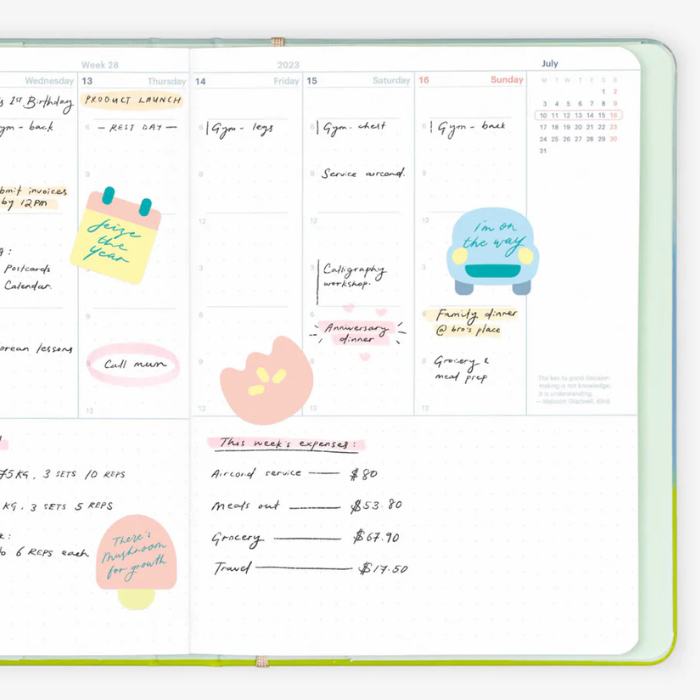 Week 28
2023
July
Wednesday
13 Thursday
14 Friday
15 Saturday
16 Sunday
M T W T F S S
1 2
3 4 5 6 7 8 9
10 11 12 13 14 15 16
17 18 19 20 21 22 23
24 25 26 27 28 29 30
31
1st Birthday
gym - back
bmit invoices
by 12pm
Postcards
Calendar.
orean lessons
PRODUCT LAUNCH
6
- REST DAY -
seize
the
year
Call mum
12
6
Gym - legs
9
12
3
6
9
12
6
Gym - chest
9
Service aircond.
12
3
Calligraphy
workshop.
6
Anniversary
dinner
9
12
6
Gym - back
9
12
i'm on
the way
3
6
Family dinner
@ bro's place
9
Grocery &
meal prep
12
The key to good decision
making is not knowledge.
It is understanding.
75 KG, 3 SETS 10 REPS
KG, 3 SETS 5 REPS
6 REPS each
There's
mushroom
for growth
This week's expenses:
Aircond service — $80
Meals out — $53.80
Grocery — $67.90
Travel — $17.50